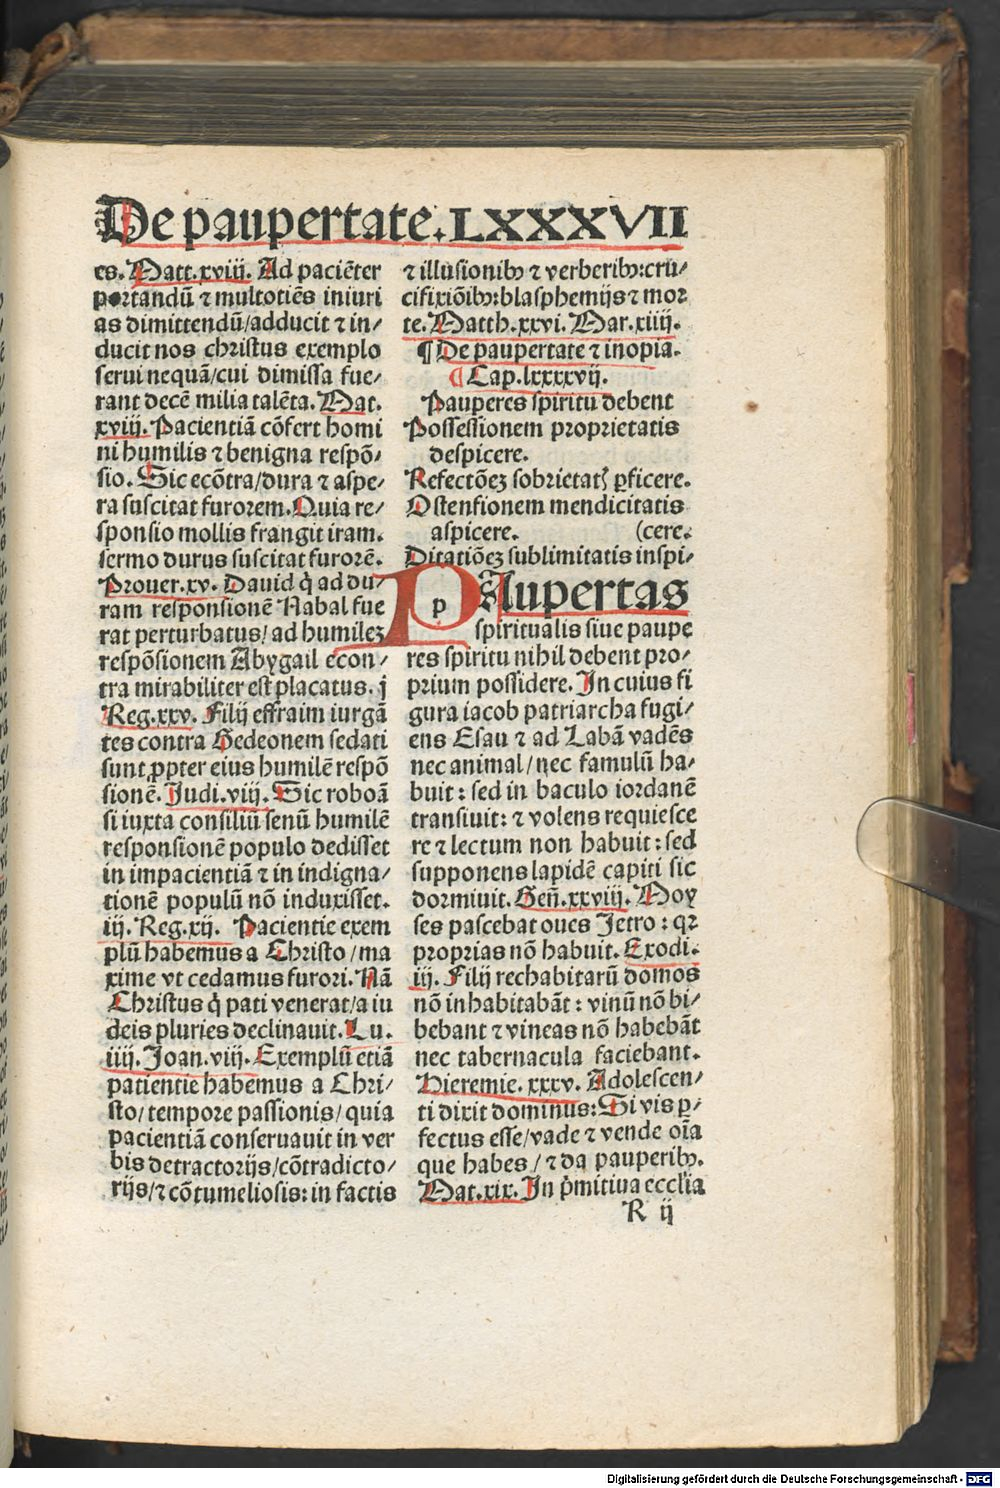 De paupertate. LXXXXVII
es. Matt. xviij. Ad paciēter
portandū ⁊ multotiēs iniuri
as dimittendū/adducit ⁊ in/
ducit nos christus exemplo
serui nequā/cui dimissa fue/
rant decē milia talēta. Mat.
xviij. Pacientiā cōfert homi
ni humilis ⁊ benigna respō/
sio. Sic ecōtra/dura ⁊ aspe/
ra suscitat furorem. Quia re/
sponsio mollis frangit iram.
sermo durus suscitat furorē.
Prouer. xv. Dauid q̇ ad du/
ram responsionē Nabal fue
rat perturbatus/ad humileꝫ
respōsionem Abygail econ/
tra mirabiliter est placatus. j
Reg. xxv. Filij effraim iurgā
tes contra Gedeonem sedati
sunt ꝓpter eius humilē respō
sionē. Judi. viij. Sic roboā
si iuxta consiliū senū humilē
responsionē populo dedisset
in impacientiā ⁊ in indigna/
tionē populū nō induxisset.
iij. Reg. xij. Pacientie exem
plū habemus a Christo/ma
xime vt cedamus furori. Nā
Christus q̇ pati venerat/a iu
deis pluries declinauit. Lu.
iiij. Joan. viij. Exemplū etiā
patientie habemus a Chri/
sto/tempore passionis/quia
pacientiā conseruauit in ver
bis detractorijs/cōtradicto/
rijs/⁊ cōtumeliosis: in factis
⁊ illusionibꝰ ⁊ verberibꝰ: cru/
cifixiōibꝰ: blasphemijs ⁊ mor
te. Matth. xxvi. Mar. xiiij.
¶ De paupertate ⁊ inopia.
¶ Cap. lxxxxvij.
Pauperes spiritu debent
Possessionem proprietatis
despicere.
Refectōeꝫ sobrietatꝭ ꝑficere.
Ostensionem mendicitatis
aspicere. (cere.
Ditatiōeꝫ sublimitatis inspi/
pAupertas
spiritualis siue paupe
res spiritu nihil debent pro/
prium possidere. In cuius fi
gura iacob patriarcha fugi/
ens Esau ⁊ ad Labā vadēs
nec animal/nec famulū ha/
buit: sed in baculo iordanē
transiuit: ⁊ volens requiesce
re ⁊ lectum non habuit: sed
supponens lapidē capiti sic
dormiuit. Geñ. xxviij. Moy
ses pascebat oues Jetro: qꝛ
proprias nō habuit. Exodi.
iij. Filij rechabitarū domos
nō inhabitabāt: vinū nō bi/
bebant ⁊ vineas nō habebāt
nec tabernacula faciebant.
Hieremie. xxxv. Adolescen/
ti dixit dominus: Si vis ꝑ/
fectus esse/vade ⁊ vende oīa
que habes/⁊ da pauperibꝰ.
Mat. xix. In pͥmitiua ecclīa
R ij
Digitalisierung gefördert durch die Deutsche Forschungsgemeinschaft - DFG